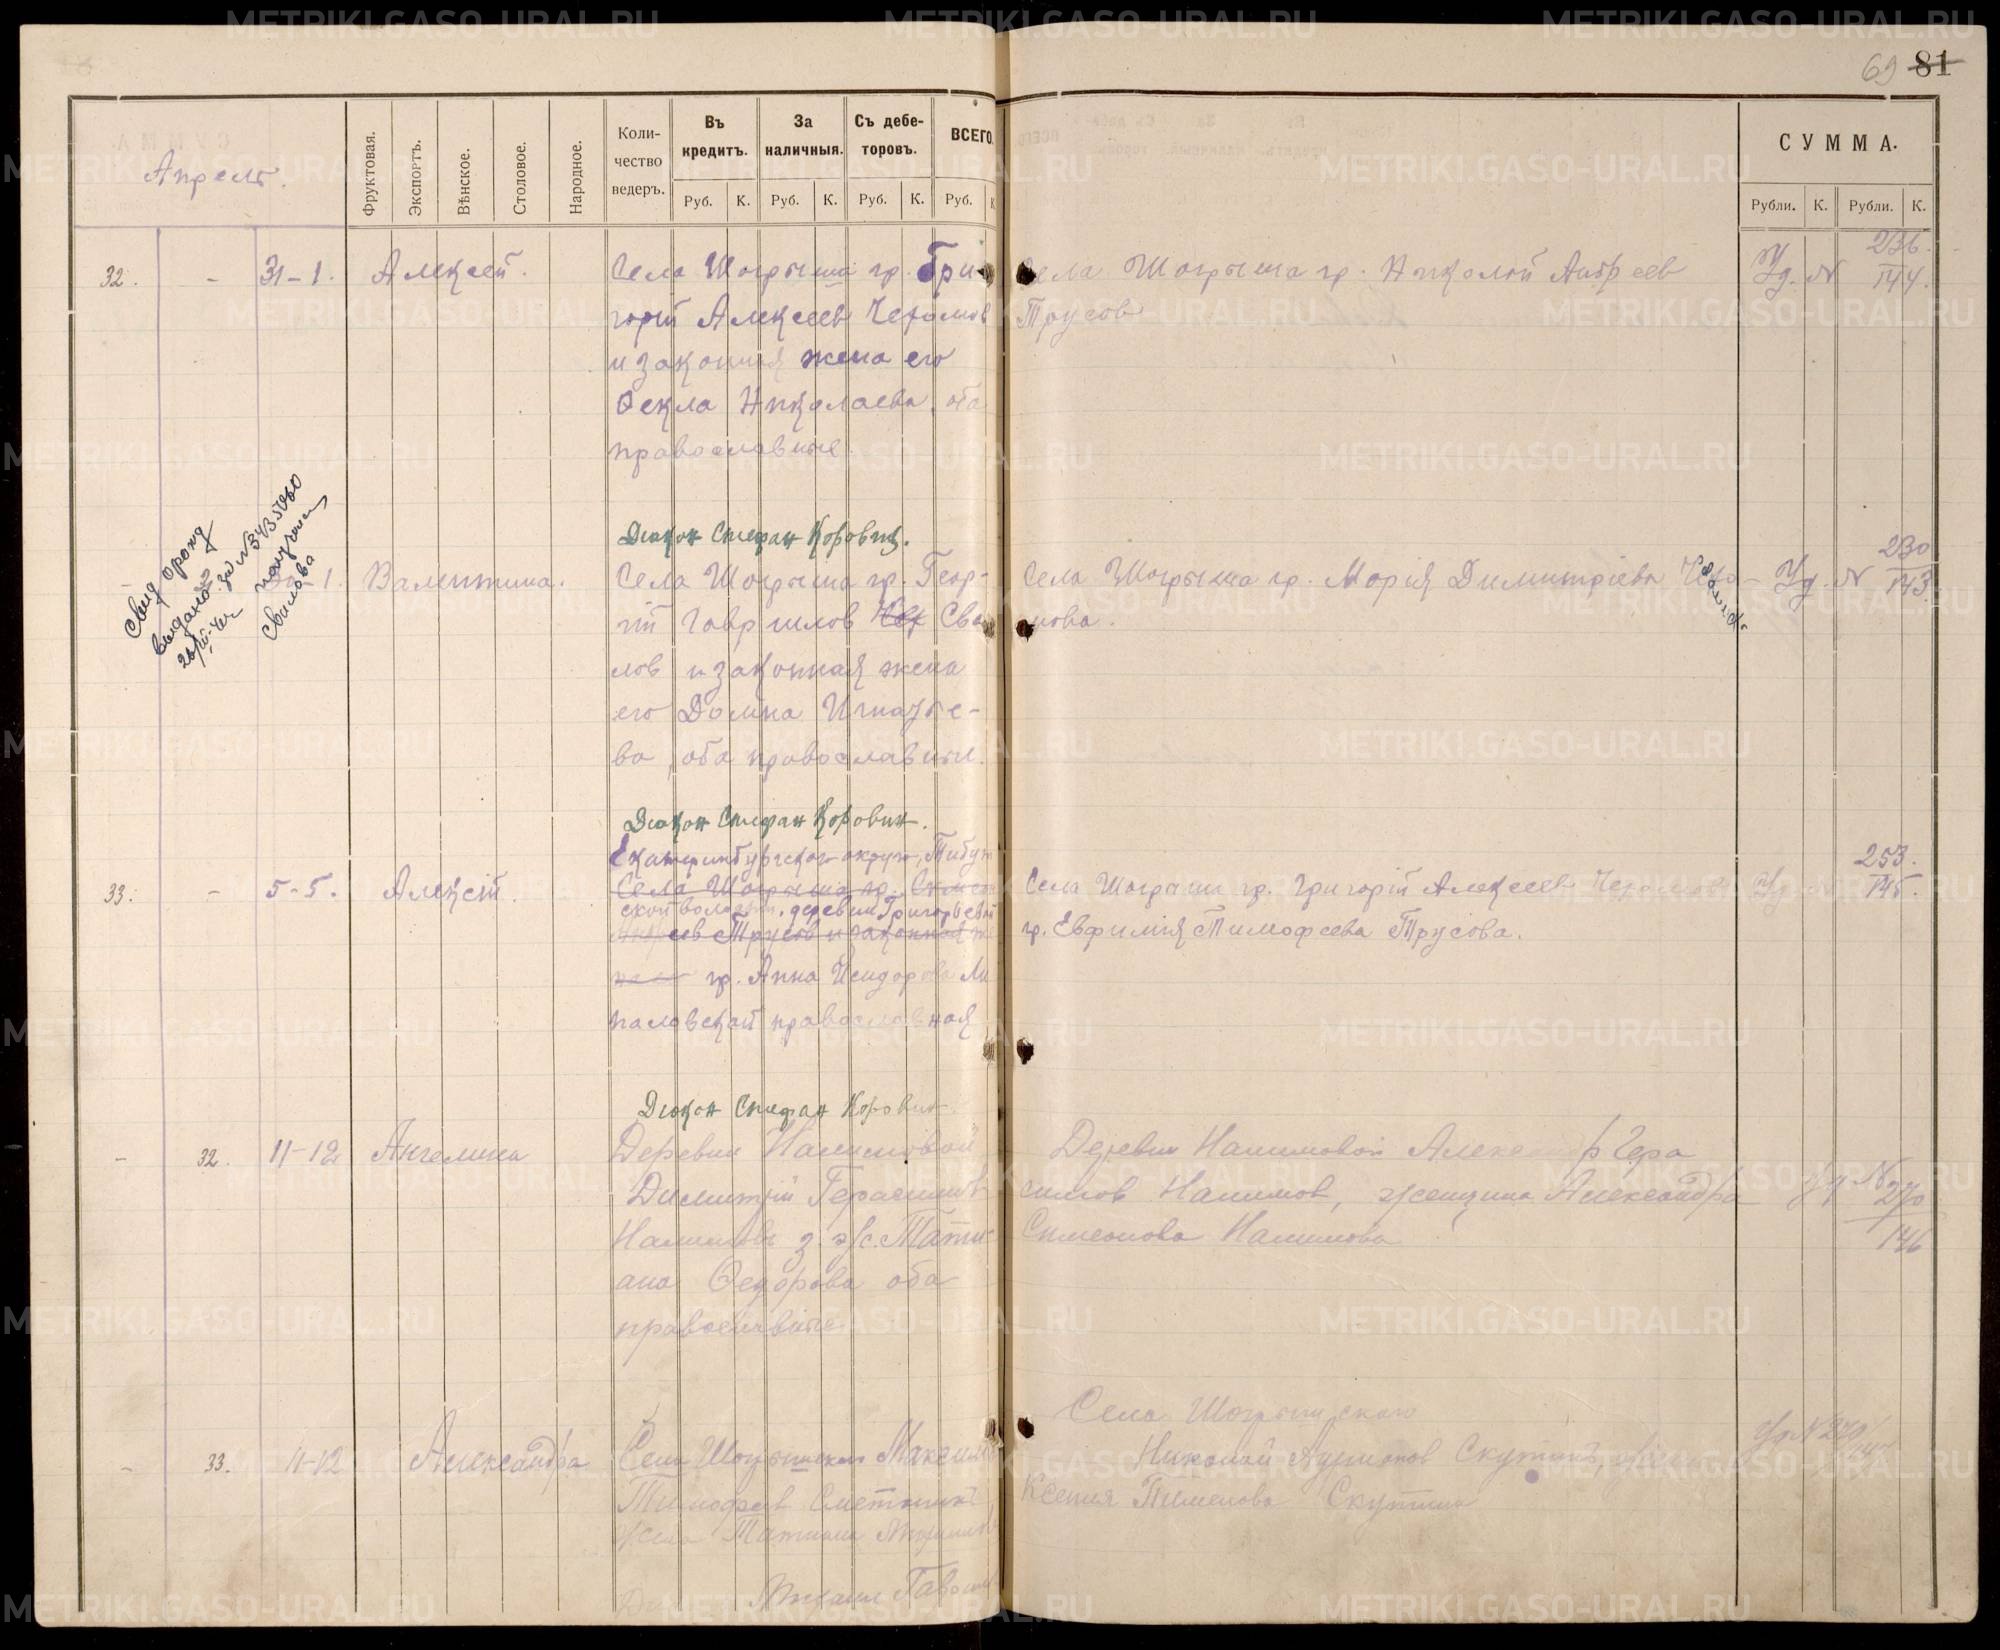 69 81
Апрель.
Фруктовая.
Экспортъ.
Вѣнское.
Столовое.
Народное.
Коли-
чество
ведеръ.
Въ
кредитъ.
За
наличныя.
Съ дебе-
торовъ.
ВСЕГО.
Руб. К. Руб. К. Руб. К. Руб. К
СУММА.
Рубли. К. Рубли. К.
32. - 31-1. Алексей.
Села Шогрыша гр. Гри-
горій Алексеев Чехомов
и законная жена его
Ѳекла Николаева, оба
православные.
Села Шогрыша гр. Николай Андреев
Трусов
Уд. № 236.
144.
Диакон Стефан Коровин.
Свид. о рожд
выдано за № 343
получена
Свалова
- 1. Валентина.
Села Шогрыша гр. Геор-
гій Гаврилов Чех Сва
лов и законная жена
его Домна Игнатье-
ва, оба православные.
Села Шогрыша гр. Марія Димитріева
мова.
Уд. № 230
143.
Диакон Стефан Коровин.
33. - 5-5. Алексій.
Екатеринбургскаго округа,
Села Шогрыша гр.
ской волости, деревни Григорьевой
Трусов и законная же
на гр. Анна Исидорова
православная
Села Шограша гр. Григорій Алексеев Чехомов
гр. Евфимія Тимофеева Трусова.
Уд. № 253.
145.
Диакон Стефан Коровин.
- 32. 11-12 Ангелина
Деревни Налимовой
Димитрій Герасимов
Налимовъ з. ж. Тати
ана Ѳедорова оба
православные
Деревни Налимовой Александр Гера
симов Налимов, женщина Александра
Симеонова Налимова
Уд № 270
146
- 33. 11-12 Александра
Села Шогрышскаго Максим
Тимофеев Сметанинъ
Жена Татиана
Села Шогрышскаго
Николай Скутинъ,
Ксения Пименова Скутина
METRIKI.GASO-URAL.RU